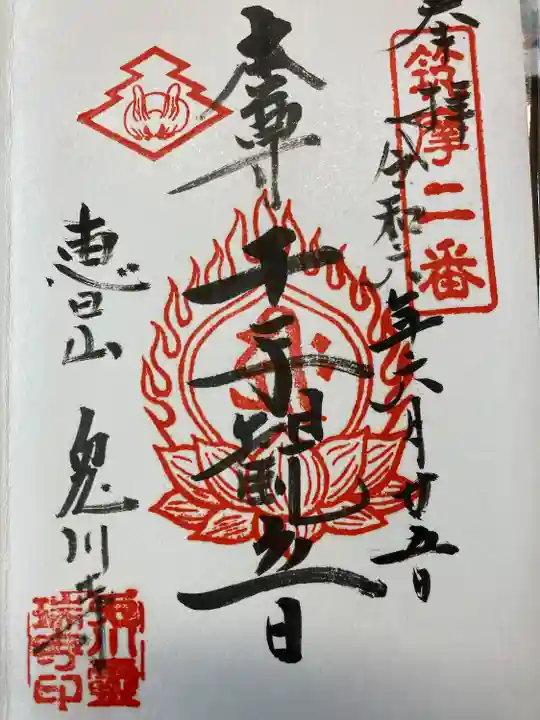 奉拝 令和六年六月廿五日
筑摩二番
本尊 千手観音
恵日山 兎川寺
兎川霊
瑞寺印